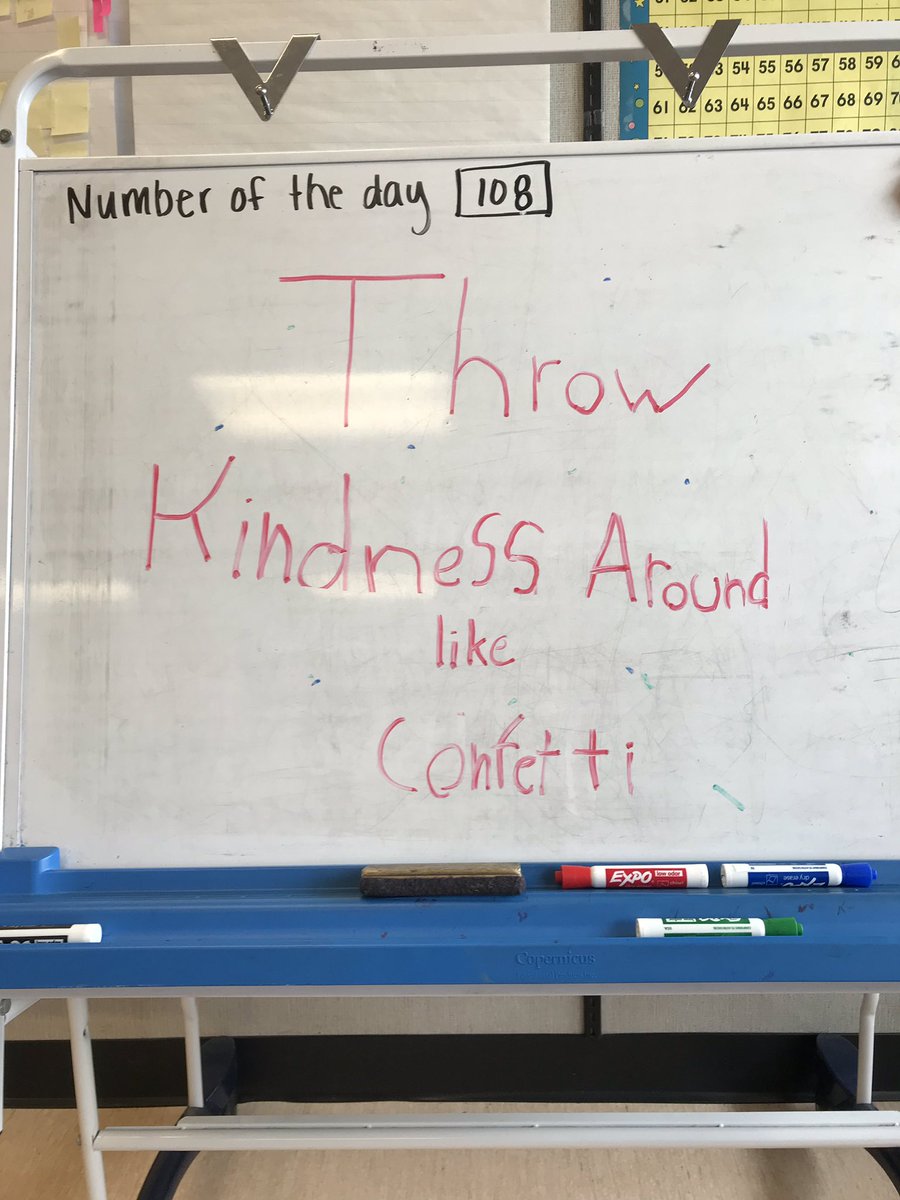 53 54 55 56 57 58 59
61 62 63 64 65 66 67 68 69
Number of the day 108
Throw
Kindness Around
like
Confetti
EXPO low odor
dry erase
Copernicus